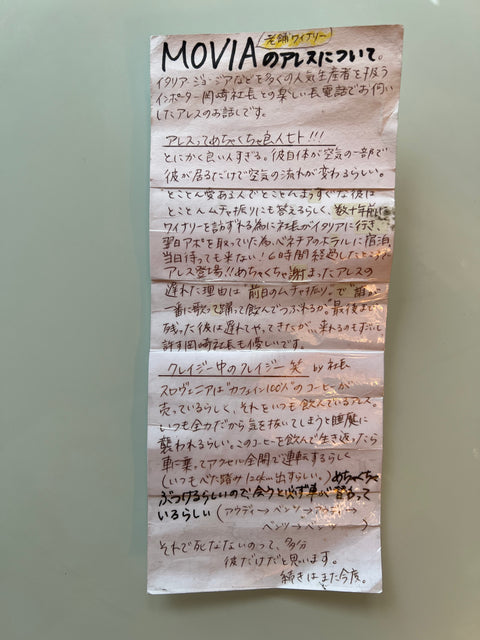 老舗ワイナリー
MOVIAのアレスについて。
イタリア・ジョージアなどを多くの人気生産者を扱う
インポーター岡崎社長との楽しい長電話でお伺い
したアレスのお話しです。
アレスってめちゃくちゃ良人せト!!!
とにかく良い人すぎる。彼自体が空気の一部で
彼が居るだけで空気の流れが変わるらしい。
とことん愛あるんでとことんまっすぐな彼は
とことんムチャ振りにも答えるらしく、数十年前に
ワイナリーを訪ずれる為に社長がイタリアに行き、
翌日アポを取っていた為、ベネチアのホテルに宿泊
当日待っても来ない!6時間経過したところで
アレス登場!!めちゃくちゃ謝まったアレスの
遅れた理由は"前日のムチャ振り"で"誰が
一番に歌って踊って飲んでつぶれるか"最後まで
残った彼は遅れてやってきたが、来れるのもすごいし
許す岡崎社長も優しいです。
クレイジー中のクレイジー笑 by 社長
スロヴェニアは"カフェイン100%"のコーヒーが
売っているらしく、それをいつも飲んでいるアレス。
いつも全力だから気を抜いてしまうと睡魔に
襲われるらしい。このコーヒーを飲んで生き返ったら
車に乗ってアクセル全開で運転するらしく
(いつもべた踏み 出すらしい。)めちゃくちゃ
ぶつけるらしいので会うと必ず車が替わって
いるらしい(アウディ→ベンツ→アウディ→
ベンツ→ベンツ )
それで死なないのって、多分
彼だけだと思います。
続きはまた今度。